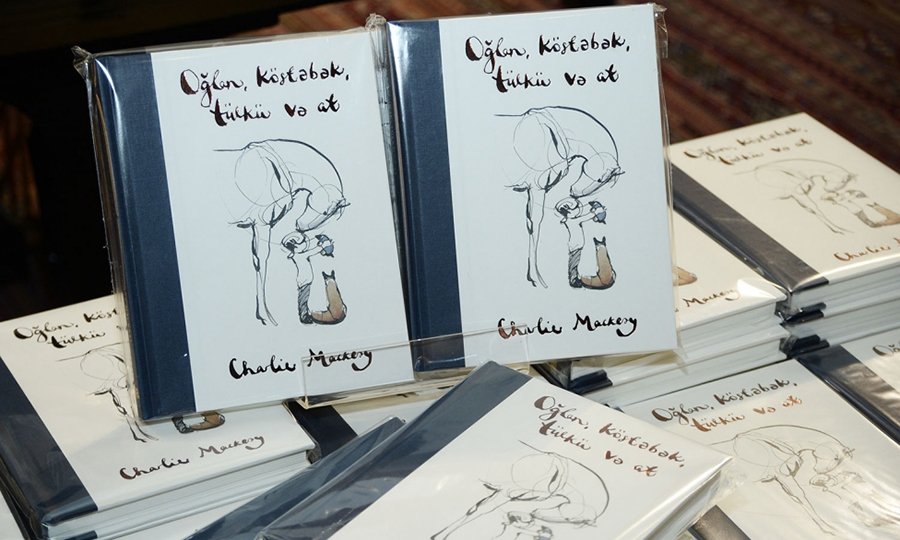 Oğlan, köstəbək,
tülkü və at
Charlie Mackesy
Oğlan, köstəbək,
tülkü və at
Charlie Mackesy
Oğlan, köstəbək,
tülkü və at
Charlie Mackesy
Mackesy
Oğlan, köstəbək,
tülkü və at
Charlie Mackesy
Oğlan, köstəbək,
tülkü və at
Oğlan, köstəbək,
tülkü və at